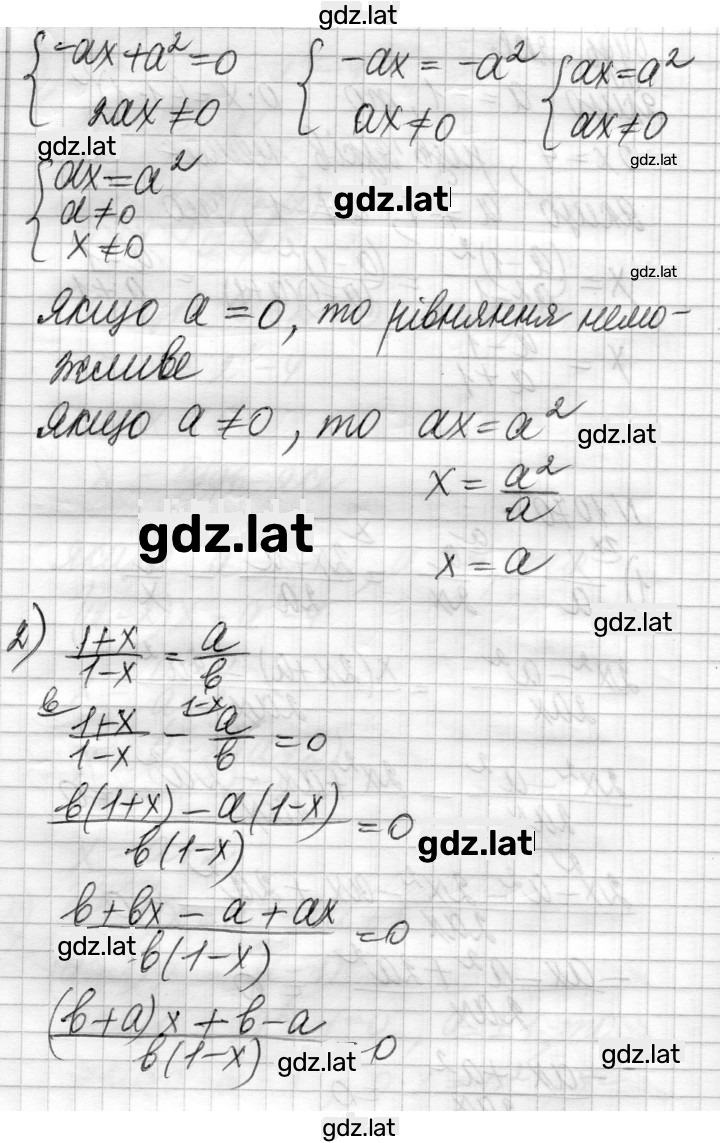 gdz.lat
{-ax+a²=0 {-ax=-a² {ax=a²
{2ax≠0 {ax≠0 {ax≠0
gdz.lat gdz.lat
{ax=a²
{a≠0 gdz.lat
{x≠0
gdz.lat
якщо a=0, то рівняння немо-
жливе
якщо a≠0, то ax=a²
gdz.lat
x=a²/a
gdz.lat
x=a
gdz.lat
2) (1+x)/(1-x) = a/b
b (1+x)/(1-x) - 1-x a/b = 0
(b(1+x)-a(1-x))/(b(1-x)) = 0
gdz.lat
(b+bx-a+ax)/(b(1-x)) = 0
gdz.lat
((b+a)x+b-a)/(b(1-x)) 0
gdz.lat gdz.lat
gdz.lat